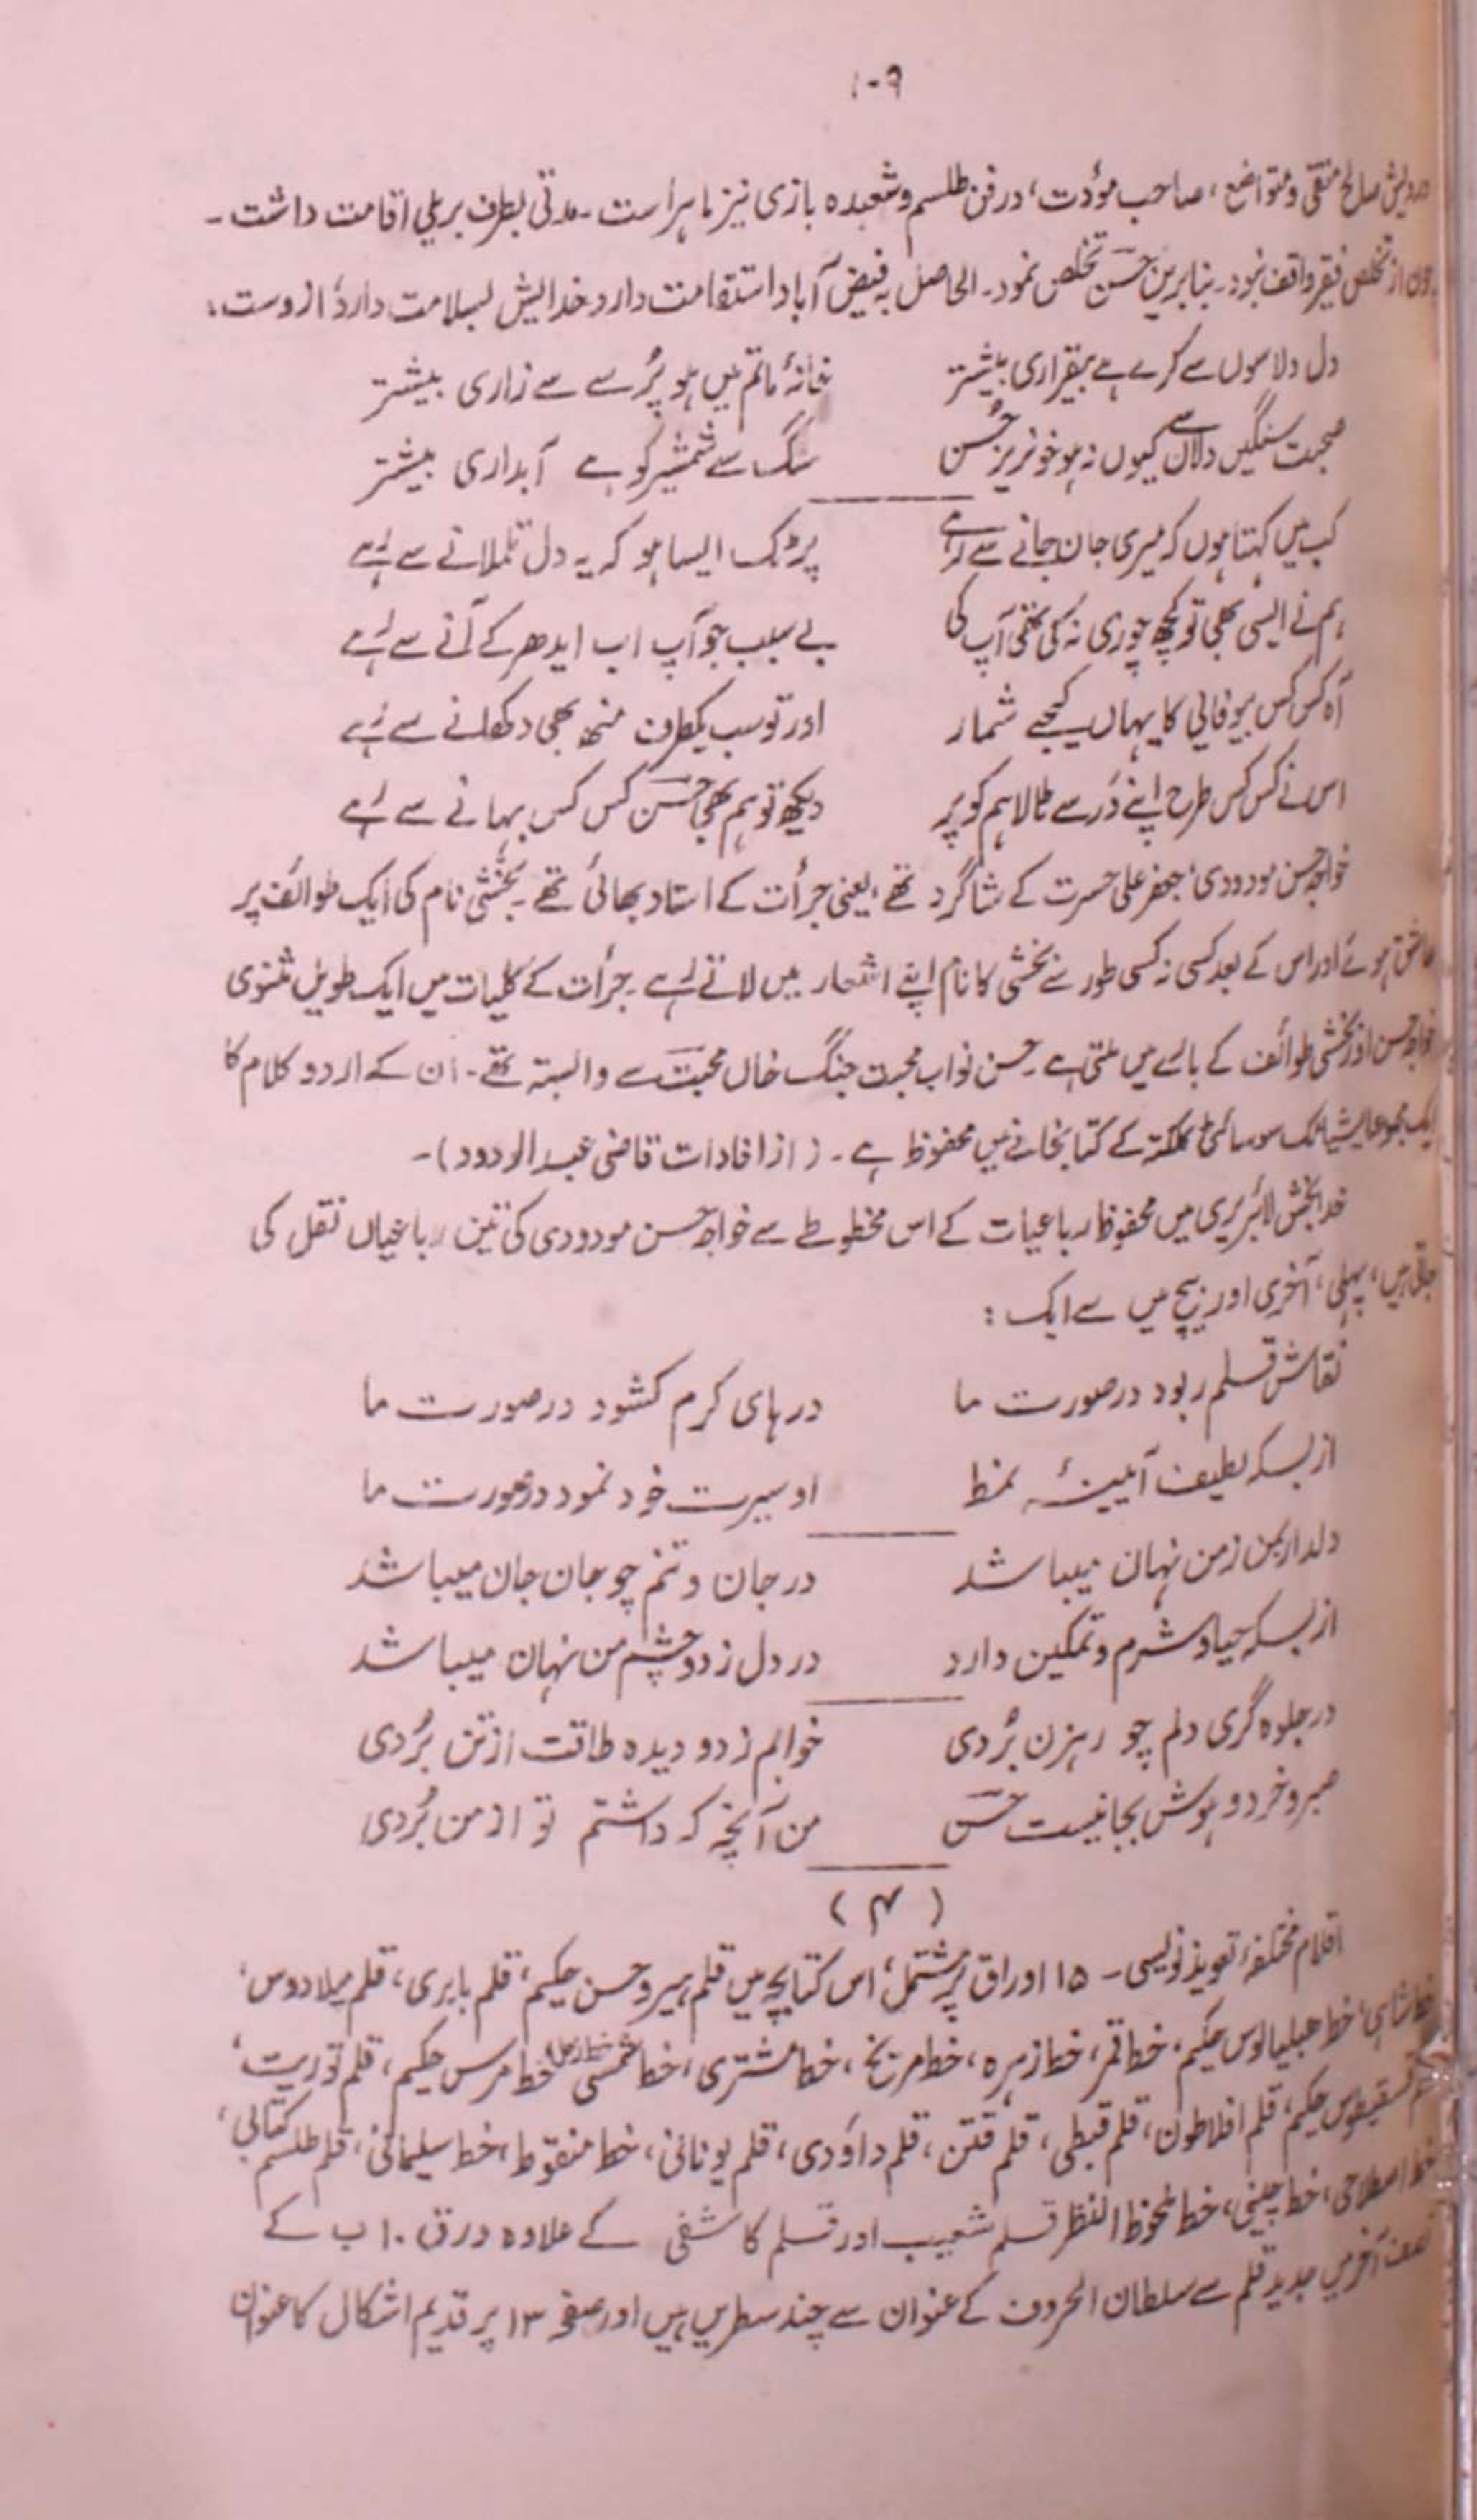 ۱۰۹
درویش صالح متقی و متواضع، صاحب مودت، در فن طلسم و شعبده بازی نیز ماہر است۔ مدتی بطرف بریلی اقامت داشت۔
چون از تخلص فقیر واقف نبود۔ بنابرین حسن تخلص نمود۔ الحاصل بہ فیض آباد استقامت دارد خدایش بسلامت دارد ازوست:
دل دلاسوں سے کرے ہے بیقراری بیشتر خانۂ ماتم میں ہو پُرسے سے زاری بیشتر
صحبت سنگیں دلاں سے کیوں نہ ہو خونریز حُسن سنگ سے شمشیر کو ہے آبداری بیشتر
کب میں کہتا ہوں کہ میری جان جانے سے رہے پر ٹک ایسا ہو کہ یہ دل تلملانے سے رہے
ہم نے ایسی بھی تو کچھ چوری نہ کی تھی آپ کی بے سبب جو آپ اب ایدھر کے آنے سے رہے
آہ کس کس بیوفائی کا یہاں کیجے شمار اور تو سب یکطرف منھ بھی دکھلانے سے رہے
اس نے کس کس طرح اپنے در سے ٹالا ہم کو پر دیکھ تو ہم بھی حسن کس کس بہانے سے رہے
خواجہ حسن مودودی، جعفر علی حسرت کے شاگرد تھے، یعنی جرأت کے استاد بھائی تھے۔ بخشی نام کی ایک طوائف پر
عاشق ہوئے اور اس کے بعد کسی نہ کسی طور سے بخشی کا نام اپنے اشعار میں لاتے رہے۔ جرأت کے کلیات میں ایک طویل مثنوی
خواجہ حسن اور بخشی طوائف کے بارے میں ملتی ہے۔ حسن نواب محبت جنگ خاں محبت سے وابستہ تھے۔ ان کے اردو کلام کا
ایک مجموعہ ایشیاٹک سوسائٹی کلکتہ کے کتابخانے میں محفوظ ہے۔ (از افادات قاضی عبدالودود)۔
خدا بخش لائبریری میں محفوظ رباعیات کے اس مخطوطے سے خواجہ حسن مودودی کی تین رباعیاں نقل کی
جاتی ہیں، پہلی، آخری اور بیچ میں سے ایک:
نقاش قلم ربود در صورت ما درہای کرم کشود در صورت ما
از بسکہ لطیف آئینۂ نمط او سیرت خود نمود در صورت ما
دلدار بمن زمن نہان میباشد در جان و تنم چو جان جان میباشد
از بسکہ حیا و شرم و تمکین دارد در دل ز دو چشم من نہان میباشد
در جلوہ گری دلم چو رہزن بُردی خوابم ز دو دیدہ طاقت از تن بُردی
صبر و خرد و ہوش بجا نیست حسن من آنچہ کہ داشتم تو از من بُردی
(۴)
اقلام مختلفۂ تعویذ نویسی۔ ۱۵ اوراق پر مشتمل، اس کتابچے میں قلم ہیر و حسن حکیم، قلم بابری، قلم میلادوس،
خط شاہی، خط حکیم، خط قمر، خط زہرہ، خط مریخ، خط مشتری، خط شمسی، خط زحل، خط ہرمس حکیم، قلم توریت،
حکیم، قلم افلاطون، قلم قبطی، قلم فتن، قلم داؤدی، قلم یونانی، خط منقوط، خط سلیمانی، قلم طلسم کتابی،
خط اصطلاحی، خط چینی، خط محفوظ النظر قلم شعیب اور قلم کاشفی کے علاوہ ورق ۱۰ ب کے
نصف آخر میں جدید قلم سے سلطان الحروف کے عنوان سے چند سطریں ہیں اور صفحہ ۱۳ پر قدیم اشکال کا عنوان